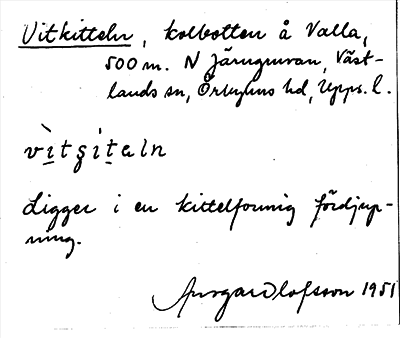 Vitkitteln, kolbotten å Valla,
500 m. N Järngruvan, Väst-
lands sn, Örbyhus hd, Upps. l.
vìtʂitəln
Ligger i en kittelformig fördjup-
ning.
Ansgar Olofsson 1951